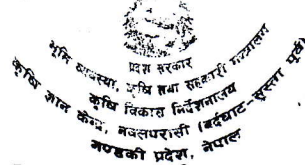 प्रदेश सरकार
भूमि व्यवस्था, कृषि तथा सहकारी मन्त्रालय
कृषि विकास निर्देशनालय
कृषि ज्ञान केन्द्र, नवलपरासी (बर्दघाट-सुस्ता पूर्व)
गण्डकी प्रदेश, नेपाल